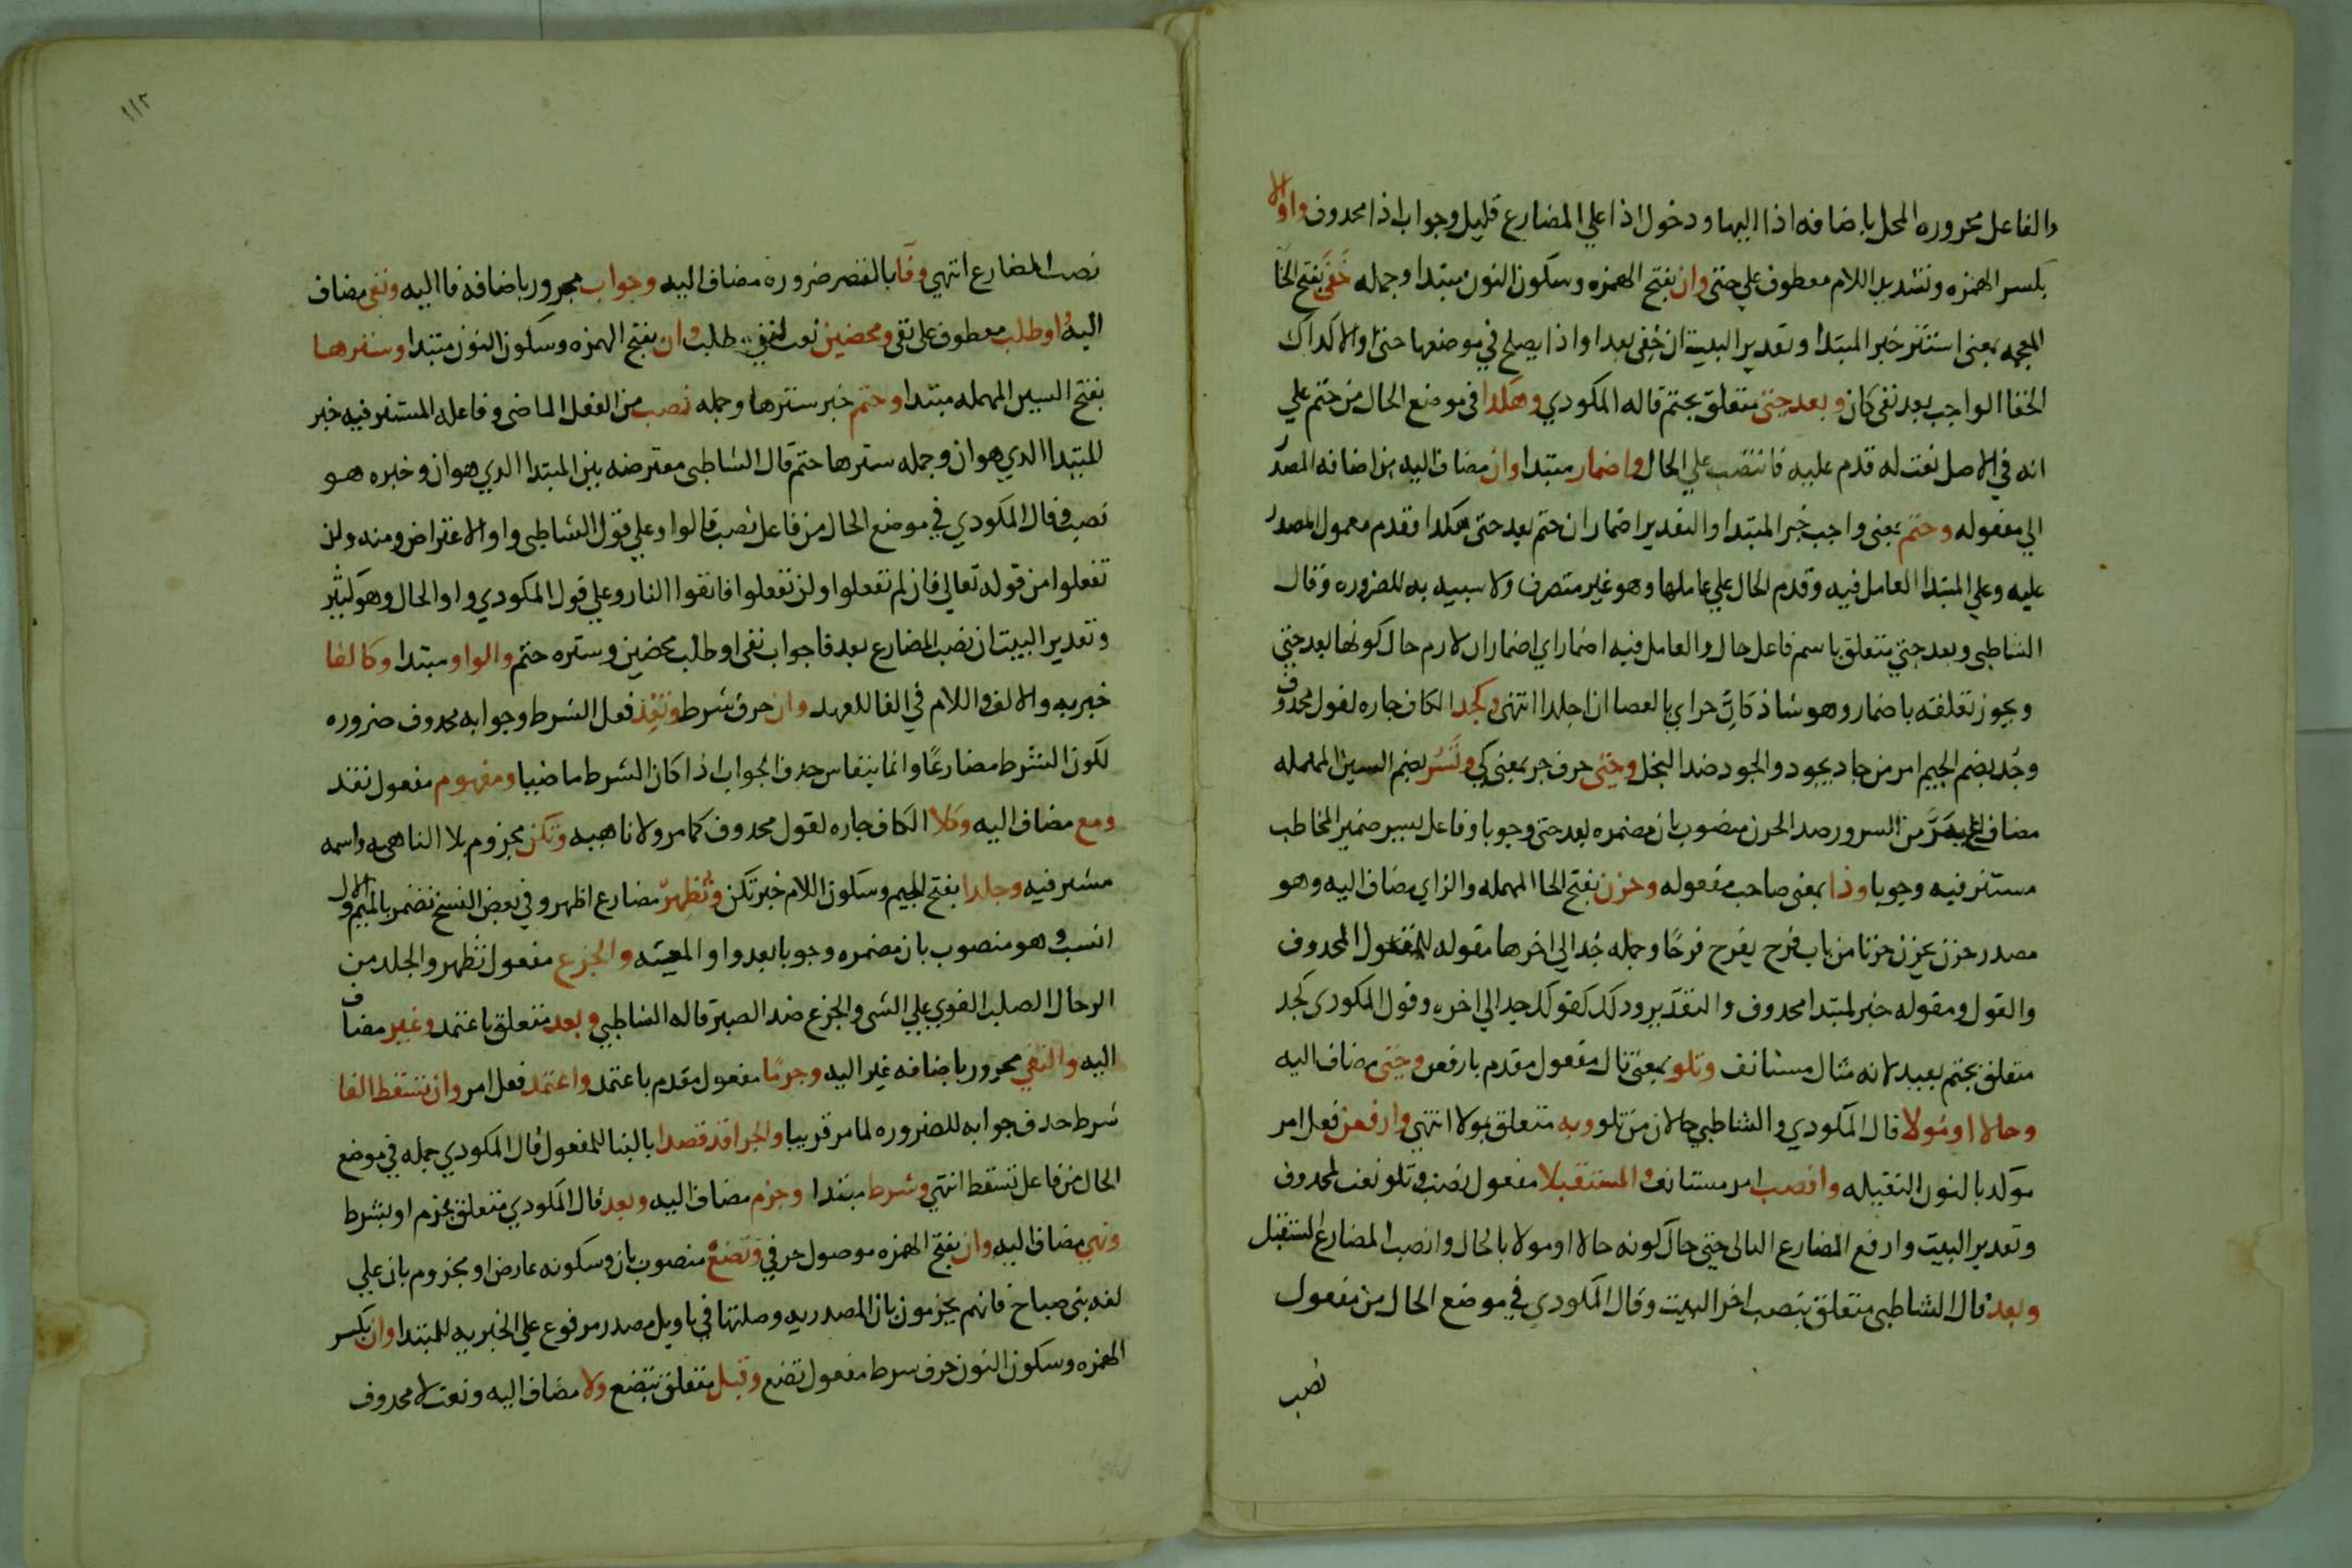 والفاعل مجروره المحل باضافه اذا اليها ودخول اذا علي المضارع قليل وجواب اذا محدوف واو الا
بكسر الهمزه وتشديد اللام معطوف علي حتي وان بفتح الهمزه وسكون النون مبتدا وجمله خفي بفتح الخا
المعجمه بمعنى استتر خبر المبتدا وتقدير البيت ان خفي بعد او اذا يصلح في موضعها حتي او الا كداك
الخفا الواجب بعد نفى كان وبعد حتي متعلق بحتم قاله المكودي وهكدا في موضع الحال من حتم علي
انه في الاصل نعت له قدم عليه فانتصب علي الحال واضمار مبتدا وان مضاف اليه من اضافه المصدر
الي مفعوله وحتم بمعنى واجب خبر المبتدا والتقدير اضمار ان حتم بعد حتى هكدا فقدم معمول المصدر
عليه وعلي المبتدا العامل فيه وقدم الحال علي عاملها وهو غير متصرف ولا سبيه به للضروره وقال
الشاطبى وبعد حتي متعلق باسم فاعل حال والعامل فيه اضمار اي اضمار ان لازم حال كونها بعد حتي
ويجوز تعلقه باضمار وهو شاذ كان جراي بالعصا ان اجلدا انتهى وكجد الكاف جاره لقول محدوف
وجد بضم الجيم امر من جاد يجود والجود ضد البخل وحتى حرف جر بمعنى كي وتسر بضم السين المهمله
مضارع سر من السرور ضد الحزن منصوب بان مضمره بعد حتى وجوبا وفاعل تسر ضمير المخاطب
مستتر فيه وجوبا وذا بمعنى صاحب مفعوله وحزن بفتح الحا المهمله والزاي مضاف اليه وهو
مصدر حزن يحزن حزنا من باب فرح يفرح فرحا وجمله جد الي اخرها مقوله للقول المحدوف
والقول ومقوله خبر لمبتدا محدوف والتقدير ودلك كقولك جد الي اخره وقول المكودي كجد
متعلق بحتم بعيد لانه مثال مستانف وتلو بمعنى تال مفعول مقدم بارفعن وحتى مضاف اليه
وحالا او مولا قال المكودي والشاطبي حالان من تلو وبه متعلق بمولا انتهي وارفعن فعل امر
موكد بالنون الثقيله وانصب امر مستانف والمستقبلا مفعول نصب وتلو نعت لمحدوف
وتقدير البيت وارفع المضارع التالى حتى حال كونه حالا او مولا بالحال وانصب المضارع المستقبل
وبعد قال الشاطبي متعلق بنصب اخر البيت وقال المكودي في موضع الحال من مفعول
نصب
١١٢
نصب المضارع انتهي وفا بالقصر ضروره مضاف اليه وجواب مجرور باضافه فا اليه ونفى مضاف
اليه او طلب معطوف على نفى ومحضين نعت لنفي وطلب وان بفتح الهمزه وسكون النون مبتدا وسترها
بفتح السين المهمله مبتدا وحتم خبر سترها وجمله نصب من الفعل الماضى وفاعله المستتر فيه خبر
المبتدا الدي هو ان وجمله سترها حتم قال الشاطبى معترضه بين المبتدا الدي هو ان وخبره هو
نصب وقال المكودي في موضع الحال من فاعل نصب قالوا وعلي قول الشاطبى واو الاعتراض ومنه ولن
تفعلوا من قوله تعالي فان لم تفعلوا ولن تفعلوا فاتقوا النار وعلي قول المكودي واو الحال وهو كثير
وتقدير البيت ان نصب المضارع بعد فا جواب نفى او طلب محضين وستره حتم والواو مبتدا وكالفا
خبريه والالف واللام في الفا للعهد وان حرف شرط وتفد فعل الشرط وجوابه محدوف ضروره
لكون الشرط مضارعا وانما ينقاس حدف الجواب اذا كان الشرط ماضيا ومفهوم مفعول تفد
ومع مضاف اليه وكلا الكاف جاره لقول محدوف كما مر ولا ناهيه وتكن مجزوم بلا الناهيه واسمه
مستتر فيه وجلدا بفتح الجيم وسكون اللام خبر تكن وتظهر مضارع اظهر وفي بعض النسخ تضمر بالميم والاول
انسب وهو منصوب بان مضمره وجوبا بعد واو المعيه والجزع مفعول تظهر والجلد من
الرجال الصلب القوي علي الشى والجزع ضد الصبر قاله الشاطبي وبعد متعلق باعتمد وغير مضاف
اليه والنفي مجرور باضافه غير اليه وجزما مفعول مقدم باعتمد واعتمد فعل امر وان تسقط الفا
شرط حدف جوابه للضروره لما مر قريبا والجزا قد قصدا بالبنا للمفعول قال المكودي جمله في موضع
الحال من فاعل تسقط انتهي وشرط مبتدا وجزم مضاف اليه وبعد قال المكودي متعلق بجزم او بشرط
ونهي مضاف اليه وان بفتح الهمزه موصول حرفي وتضع منصوب بان وسكونه عارض او مجزوم بان علي
لغه بنى صباح فانهم يجزمون بان المصدريه وصلتها في تاويل مصدر مرفوع علي الخبريه للمبتدا وان بكسر
الهمزه وسكون النون حرف شرط مفعول تضع وقبل متعلق بتضع ولا مضاف اليه ونعت لا محدوف